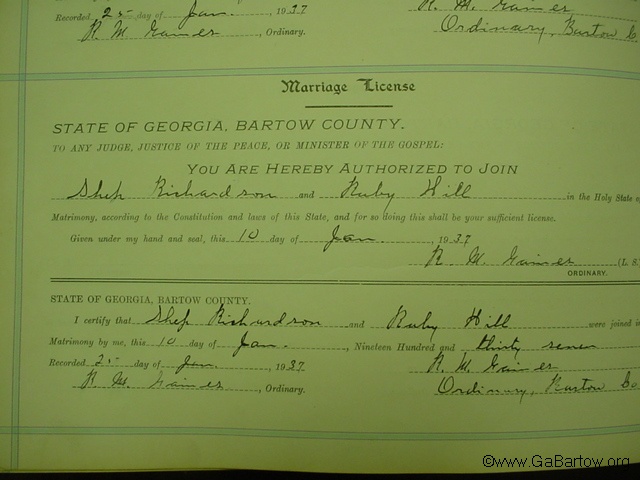 Recorded 25 day of Jan. , 1937 R. M. Gaines
R. M. Gaines , Ordinary. Ordinary, Bartow Co
Marriage License
STATE OF GEORGIA, BARTOW COUNTY.
TO ANY JUDGE, JUSTICE OF THE PEACE, OR MINISTER OF THE GOSPEL:
YOU ARE HEREBY AUTHORIZED TO JOIN
Shep Richardson and Ruby Hill in the Holy State of
Matrimony, according to the Constitution and laws of this State, and for so doing this shall be your sufficient license.
Given under my hand and seal, this 10 day of Jan. , 1937
R. M. Gaines (L. S.
ORDINARY.
STATE OF GEORGIA, BARTOW COUNTY.
I certify that Shep Richardson and Ruby Hill were joined in
Matrimony by me, this 10 day of Jan. , Nineteen Hundred and thirty seven
Recorded 25 day of Jan. , 1937 R. M. Gaines
R. M. Gaines , Ordinary. Ordinary, Bartow Co
©www.GaBartow.org